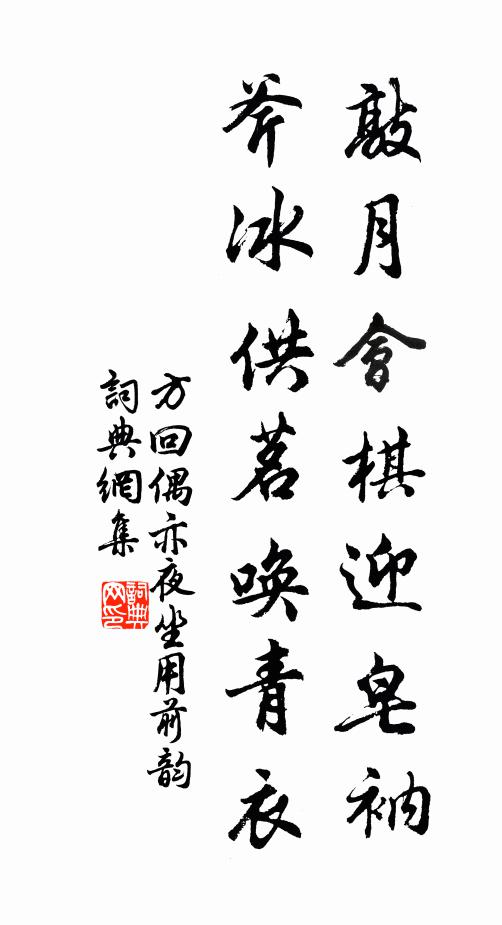 敲月會棋迎皂衲
斧冰供茗喚青衣
方回偶亦夜坐用前韵
詞典網集
詞典
网印